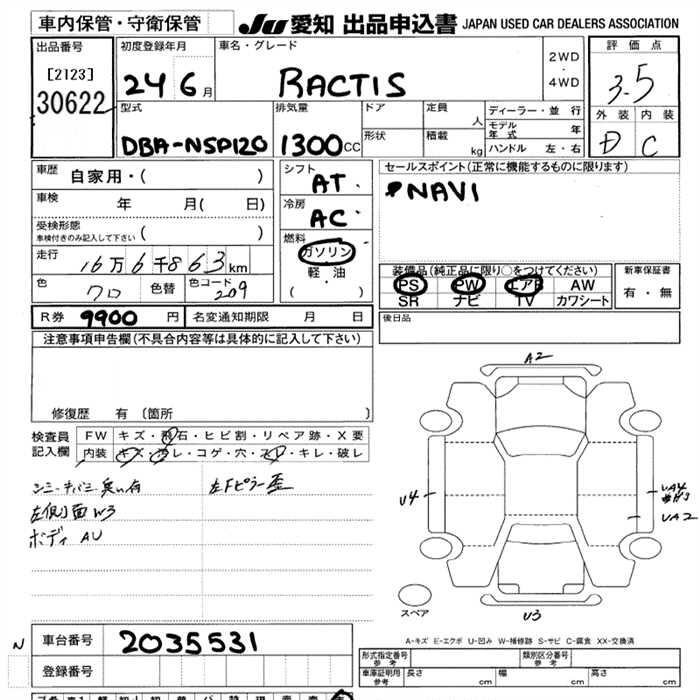 車内保管・守衛保管
JU 愛知 出品申込書 JAPAN USED CAR DEALERS ASSOCIATION
出品番号
[2123]
30622
初度登録年月
24 6月
車名・グレード
RACTIS
2WD
・
4WD
評価点
3.5
外装 内装
D C
型式
DBA-NSP120
排気量
1300cc
ドア
形状
定員
人
積載
kg
ディーラー・並行
モデル年式 年
ハンドル 左・右
車歴
自家用・( )
車検
年 月( 日)
受検形態
車検付きのみ記入して下さい ( )
走行
16万6千863km
色
クロ
色替
色コード
209
シフト
AT
冷房
AC
燃料
ガソリン
・
軽油
( )
セールスポイント(正常に機能するものに限ります)
NAVI
装備品(純正品に限り○をつけてください)
PS PW エアB AW
SR ナビ TV カワシート
新車保証書
有・無
R券 9900円
名変通知期限 月 日
後日品
注意事項申告欄(不具合内容等は具体的に記入して下さい)
修復歴 有 〔箇所 〕
検査員記入欄
FW キズ・飛石・ヒビ割・リペア跡・X要
内装 キズ・汚レ・コゲ・穴・スレ・キレ・破レ
左Fピラー歪
左側面W3
ボディ AU
A2
U4
UA4
UA2
U3
スペア
A-キズ E-エクボ U-凹み W-補修跡 S-サビ C-腐食 XX-交換済
N
車台番号
2035531
登録番号
形式指定番号
参考
類別区分番号
参考
車庫証明用
参考
長さ cm
幅 cm
高さ cm